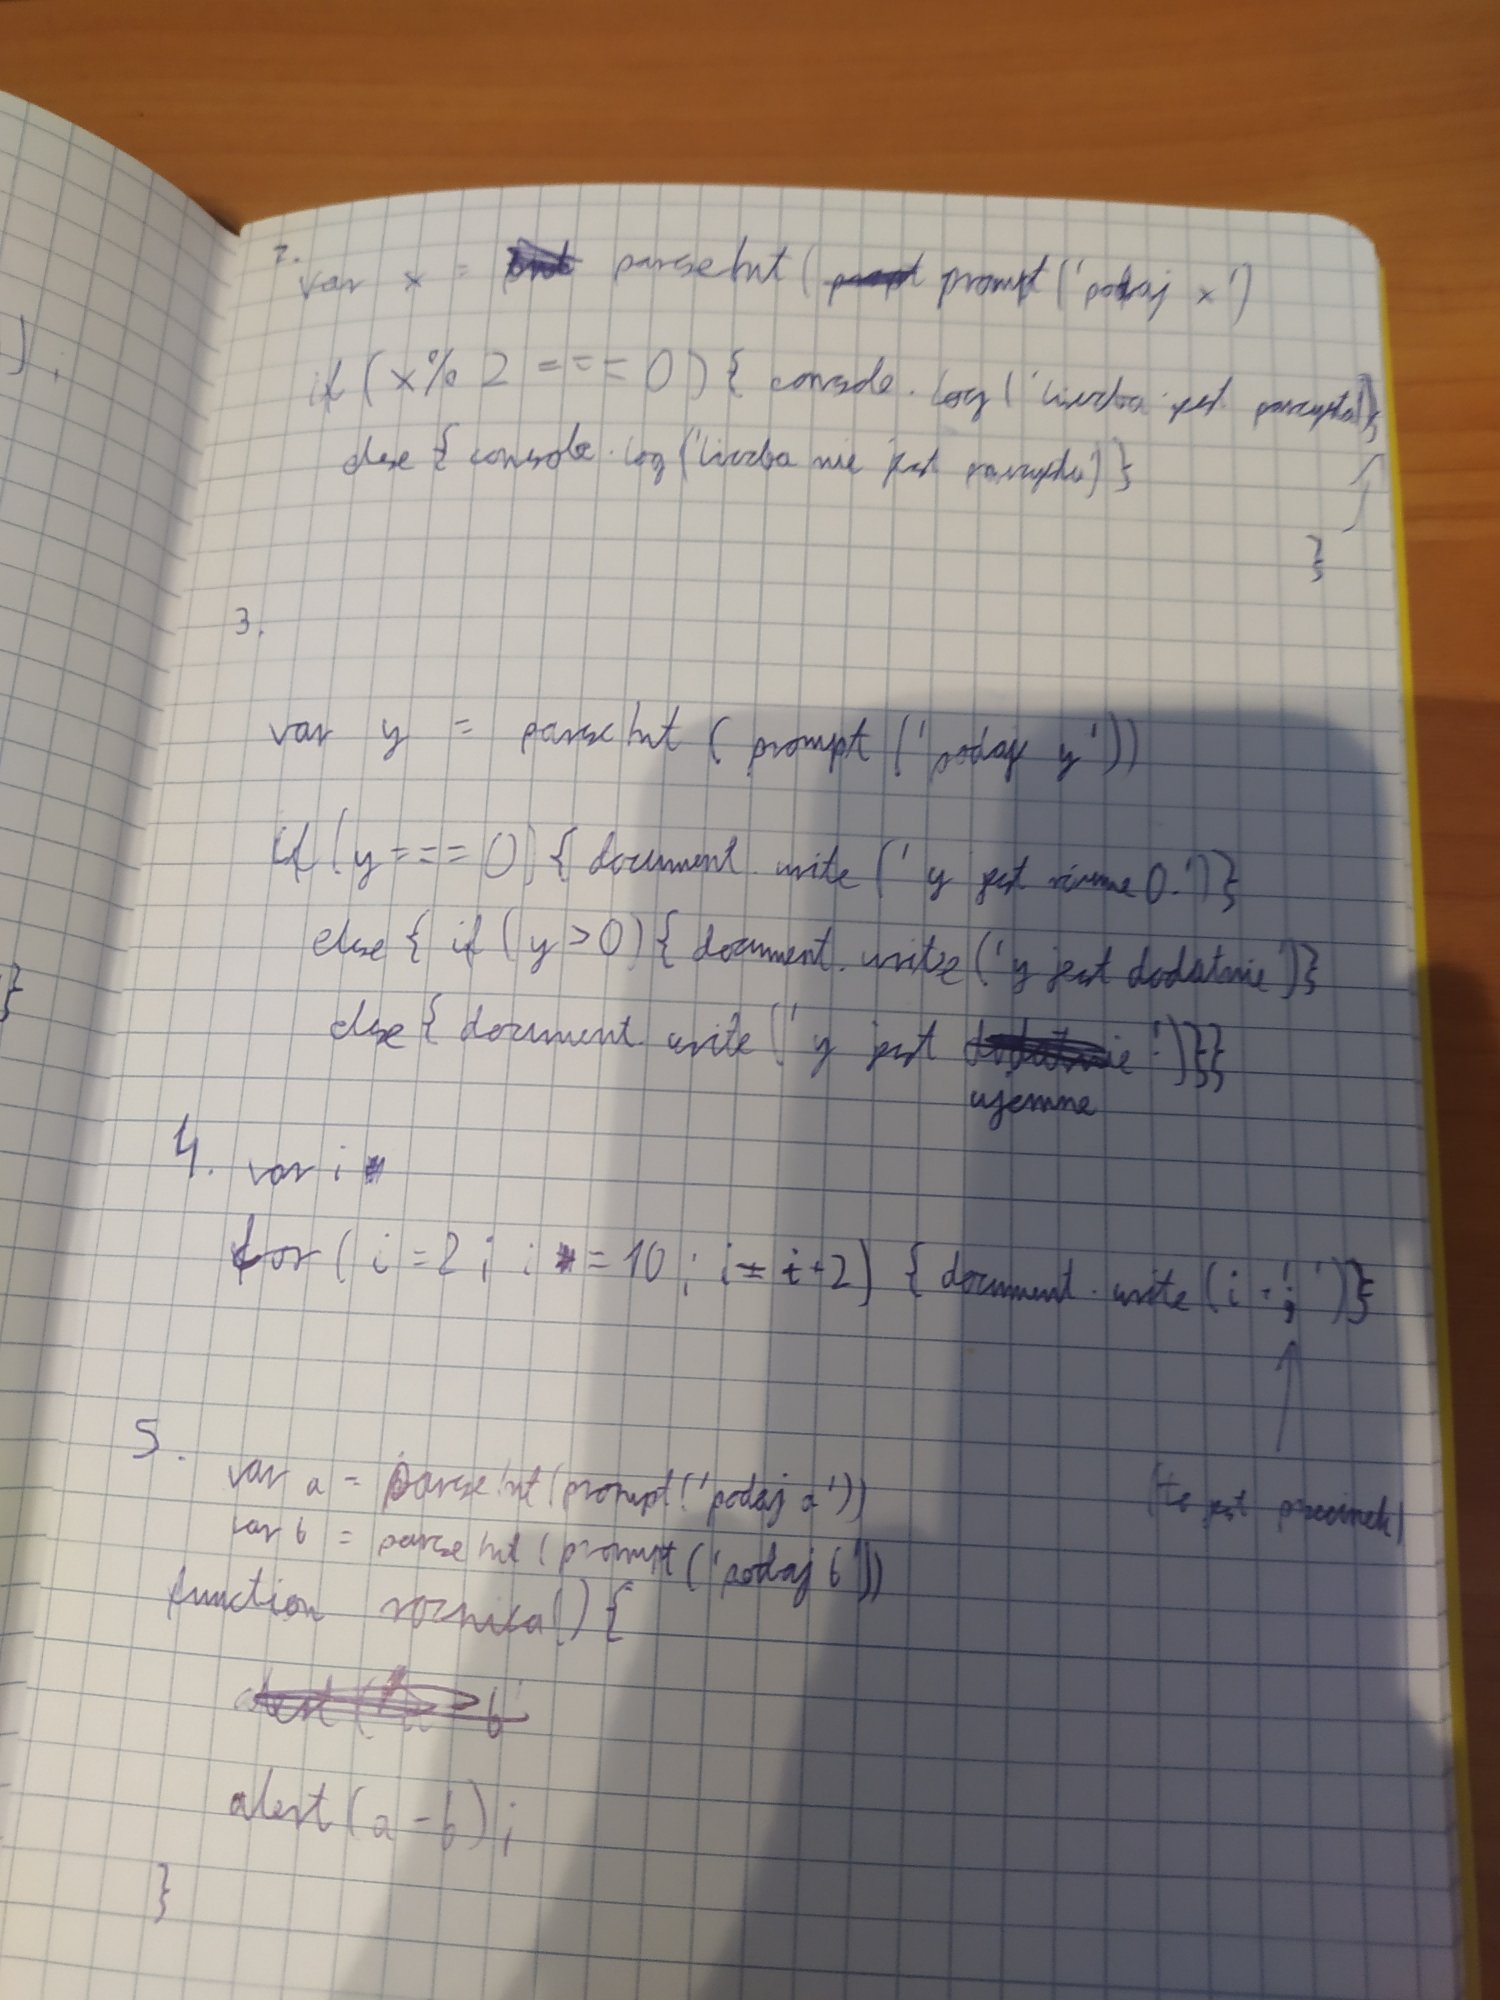 2.
var x = parseInt ( prompt ('podaj x')
if (x % 2 === 0) { console.log ('liczba jest parzysta)}
else { console.log ('liczba nie jest parzysta)}
}
3.
var y = parseInt ( prompt ('podaj y'))
if (y === 0) { document.write (' y jest równe 0.')}
else { if (y > 0) { document.write (' y jest dodatnie')}
else { document.write (' y jest dodatnie ')}}
ujemne
4. var i
for ( i = 2; i = 10; i = i+2) { document.write (i + ', ')}
(to jest przecinek)
5.
var a = parseInt (prompt ('podaj a'))
var b = parseInt (prompt ('podaj b'))
function roznica() {
alert (a - b);
}